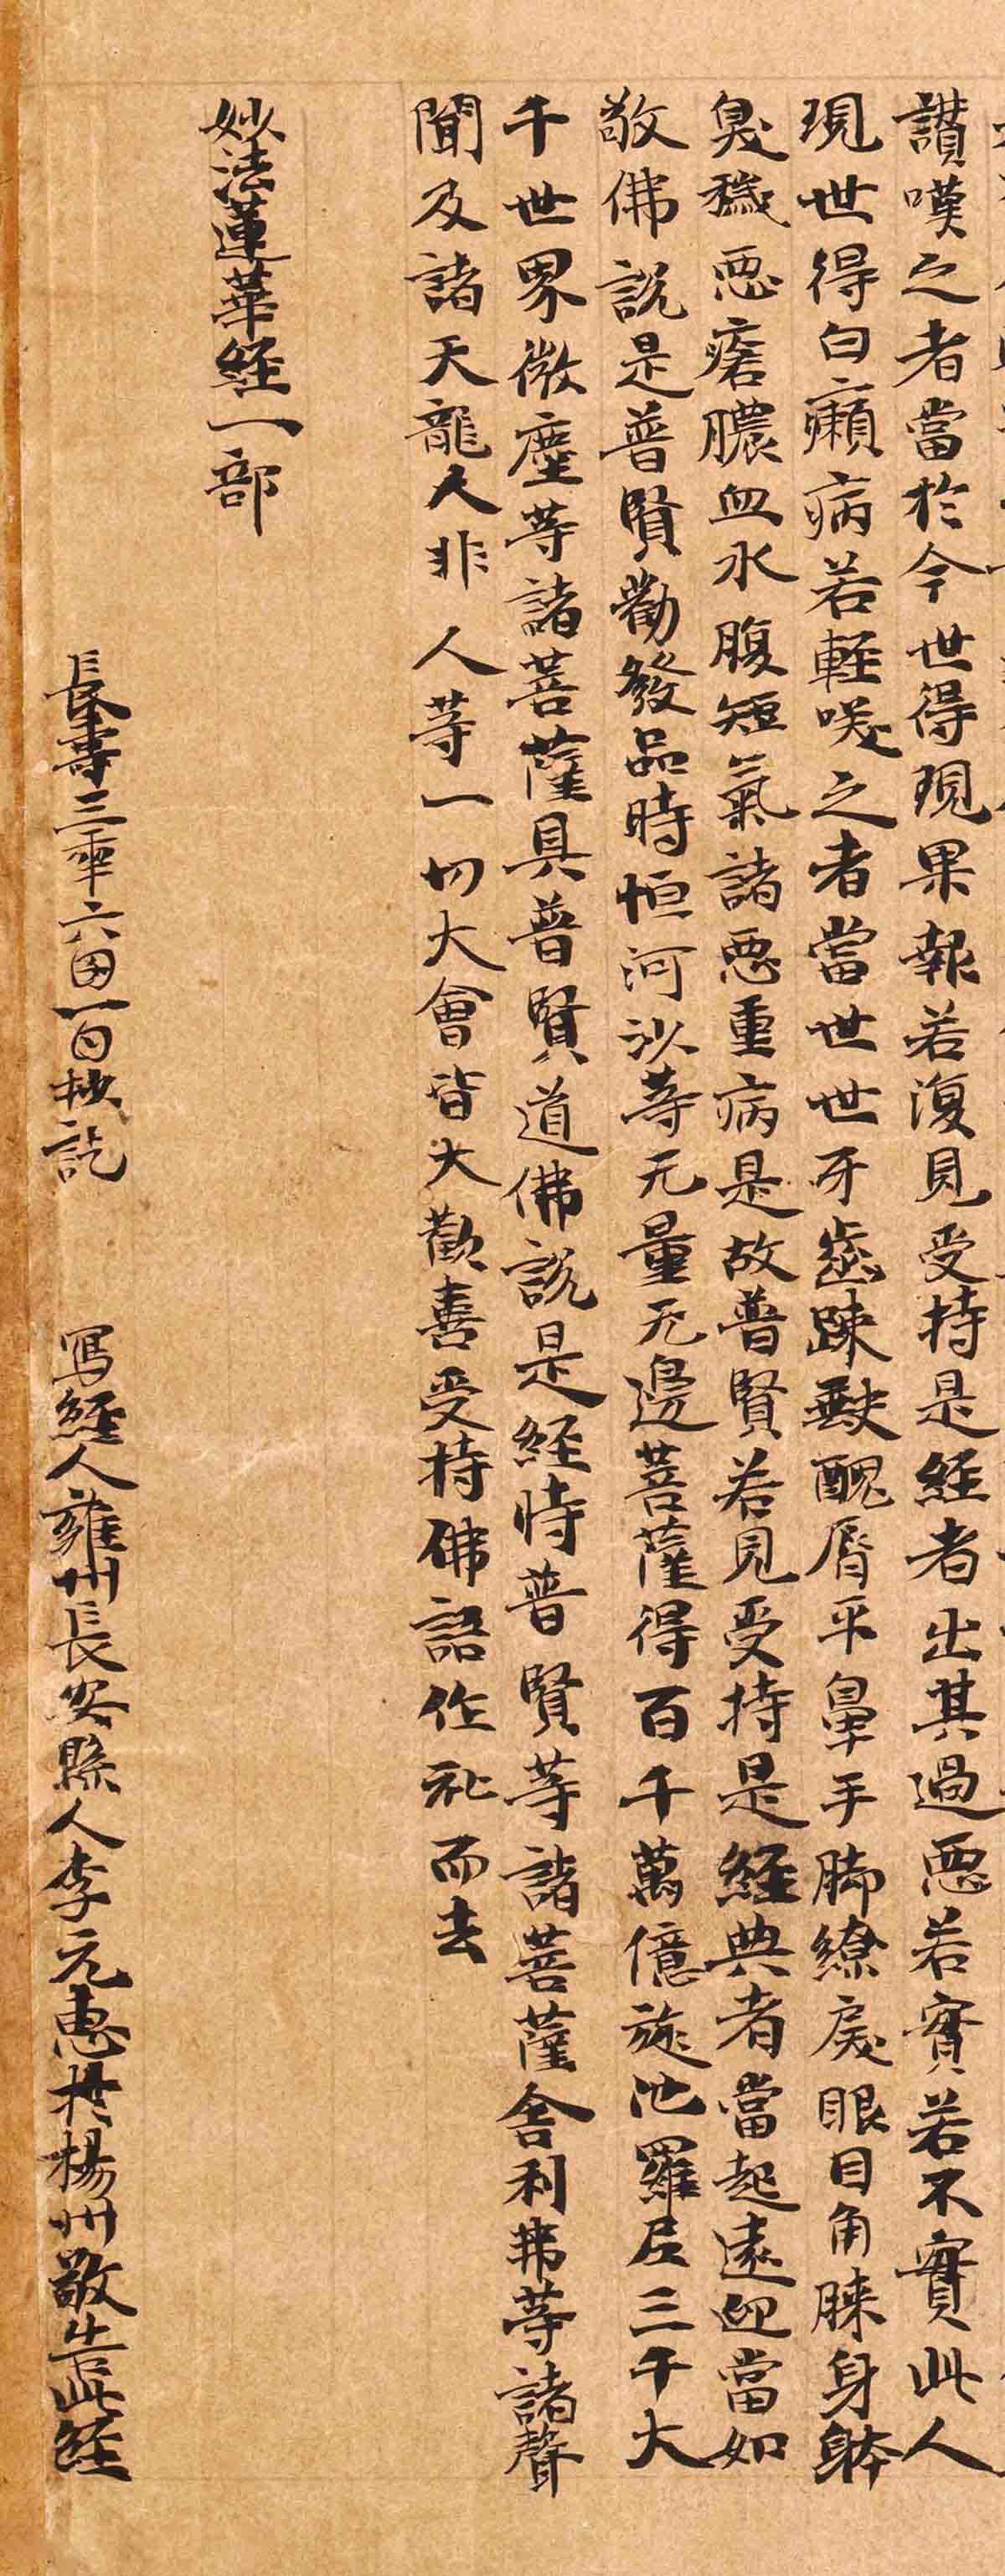 讃嘆之者當於今世得現果報若復見受持是經者出其過惡若實若不實此人
現世得白癩病若輕咲之者當世世牙齒踈缺醜脣平鼻手脚繚戾眼目角睞身躰
臭穢惡瘡膿血水腹短氣諸惡重病是故普賢若見受持是經典者當起遠迎當如
敬佛說是普賢勸發品時恒河沙等无量无邊菩薩得百千萬億旋陁羅尼三千大
千世界微塵等諸菩薩具普賢道佛說是經時普賢等諸菩薩舍利弗等諸聲
聞及諸天龍人非人等一切大會皆大歡喜受持佛語作礼而去
妙法蓮華經一部
長壽三秊六囝一日抄訖 寫經人雍州長安縣人李元惠於楊州敬告此經